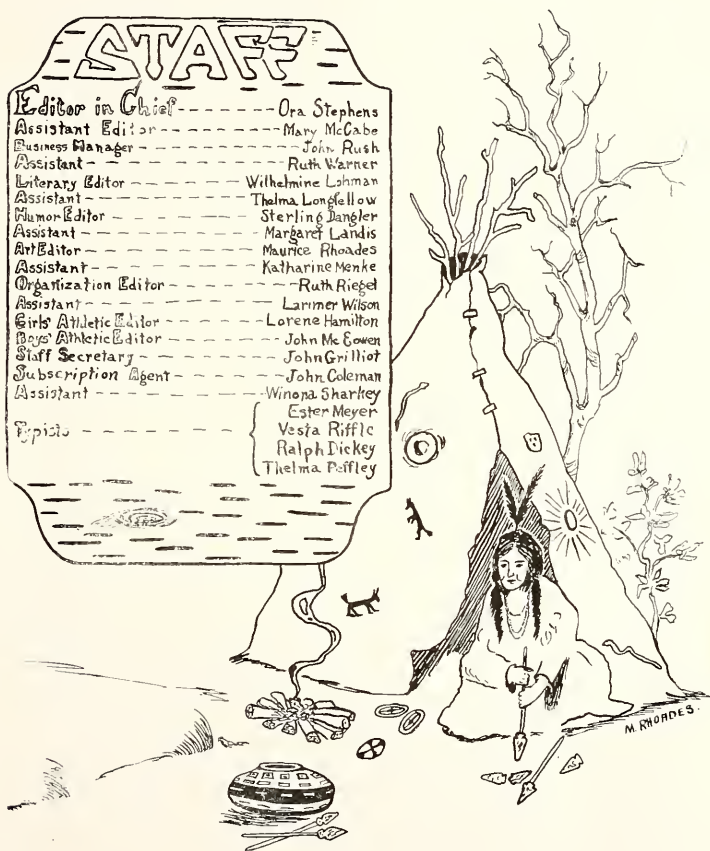 STAFF
Editor in Chief - - - - - - - - Ora Stephens
Assistant Editor - - - - - - - - Mary McCabe
Business Manager - - - - - - - - John Rush
Assistant - - - - - - - - Ruth Warner
Literary Editor - - - - - - Wilhelmine Lohman
Assistant - - - - - - - - Thelma Longfellow
Humor Editor - - - - - - - - Sterling Dangler
Assistant - - - - - - - - Margaret Landis
Art Editor - - - - - - - - Maurice Rhoades
Assistant - - - - - - - - Katharine Menke
Organization Editor - - - - - - - - Ruth Riegel
Assistant - - - - - - - - Larimer Wilson
Girls' Athletic Editor - - - - - - Lorene Hamilton
Boys' Athletic Editor - - - - - - John McEowen
Staff Secretary - - - - - - - - John Grilliot
Subscription Agent - - - - - - - - John Coleman
Assistant - - - - - - - - Winona Sharkey
Typists - - - - - - - - { Ester Meyer
Vesta Riffle
Ralph Dickey
Thelma Peffley
M. RHOADES.